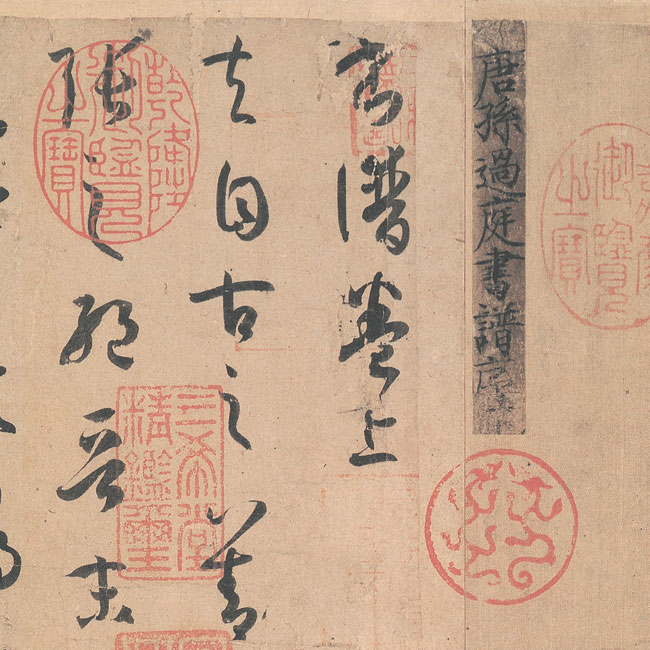 御覽之寶
唐孫過庭書譜序
書譜卷上
夫自古之善
張之絕晉末
乾隆御覽之寶
三希堂精鑑璽